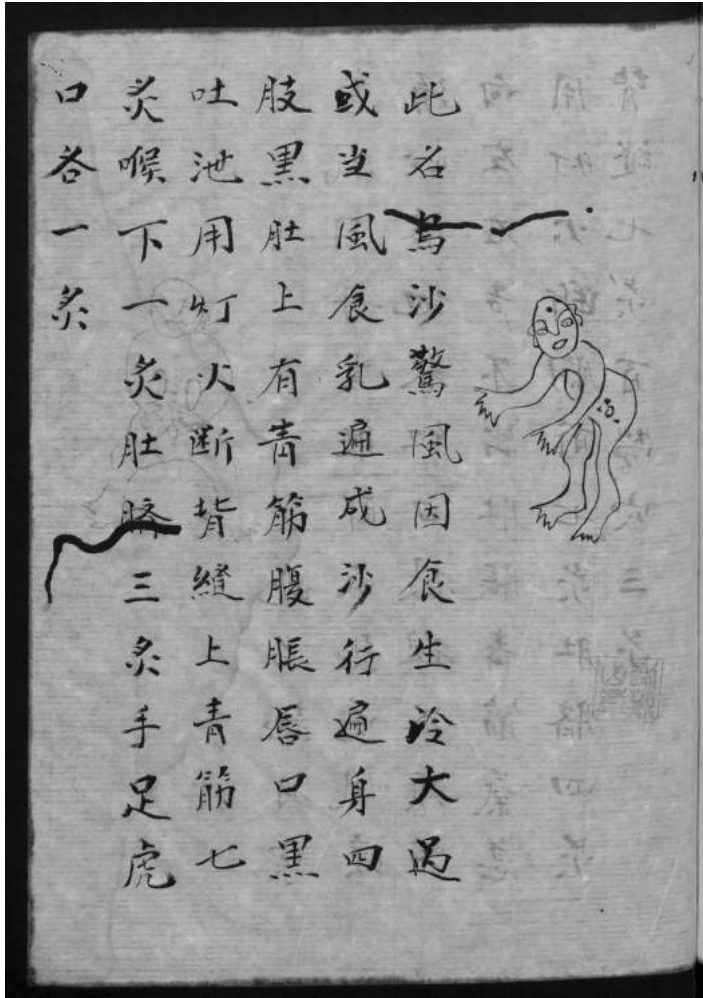 此名烏沙驚風因食生冷大過
或当風食乳遍成沙行遍身四
肢黒肚上有青筋腹脹唇口黒
吐泄用灯火断背縫上青筋七
炙喉下一炙肚臍三炙手足虎
口各一炙